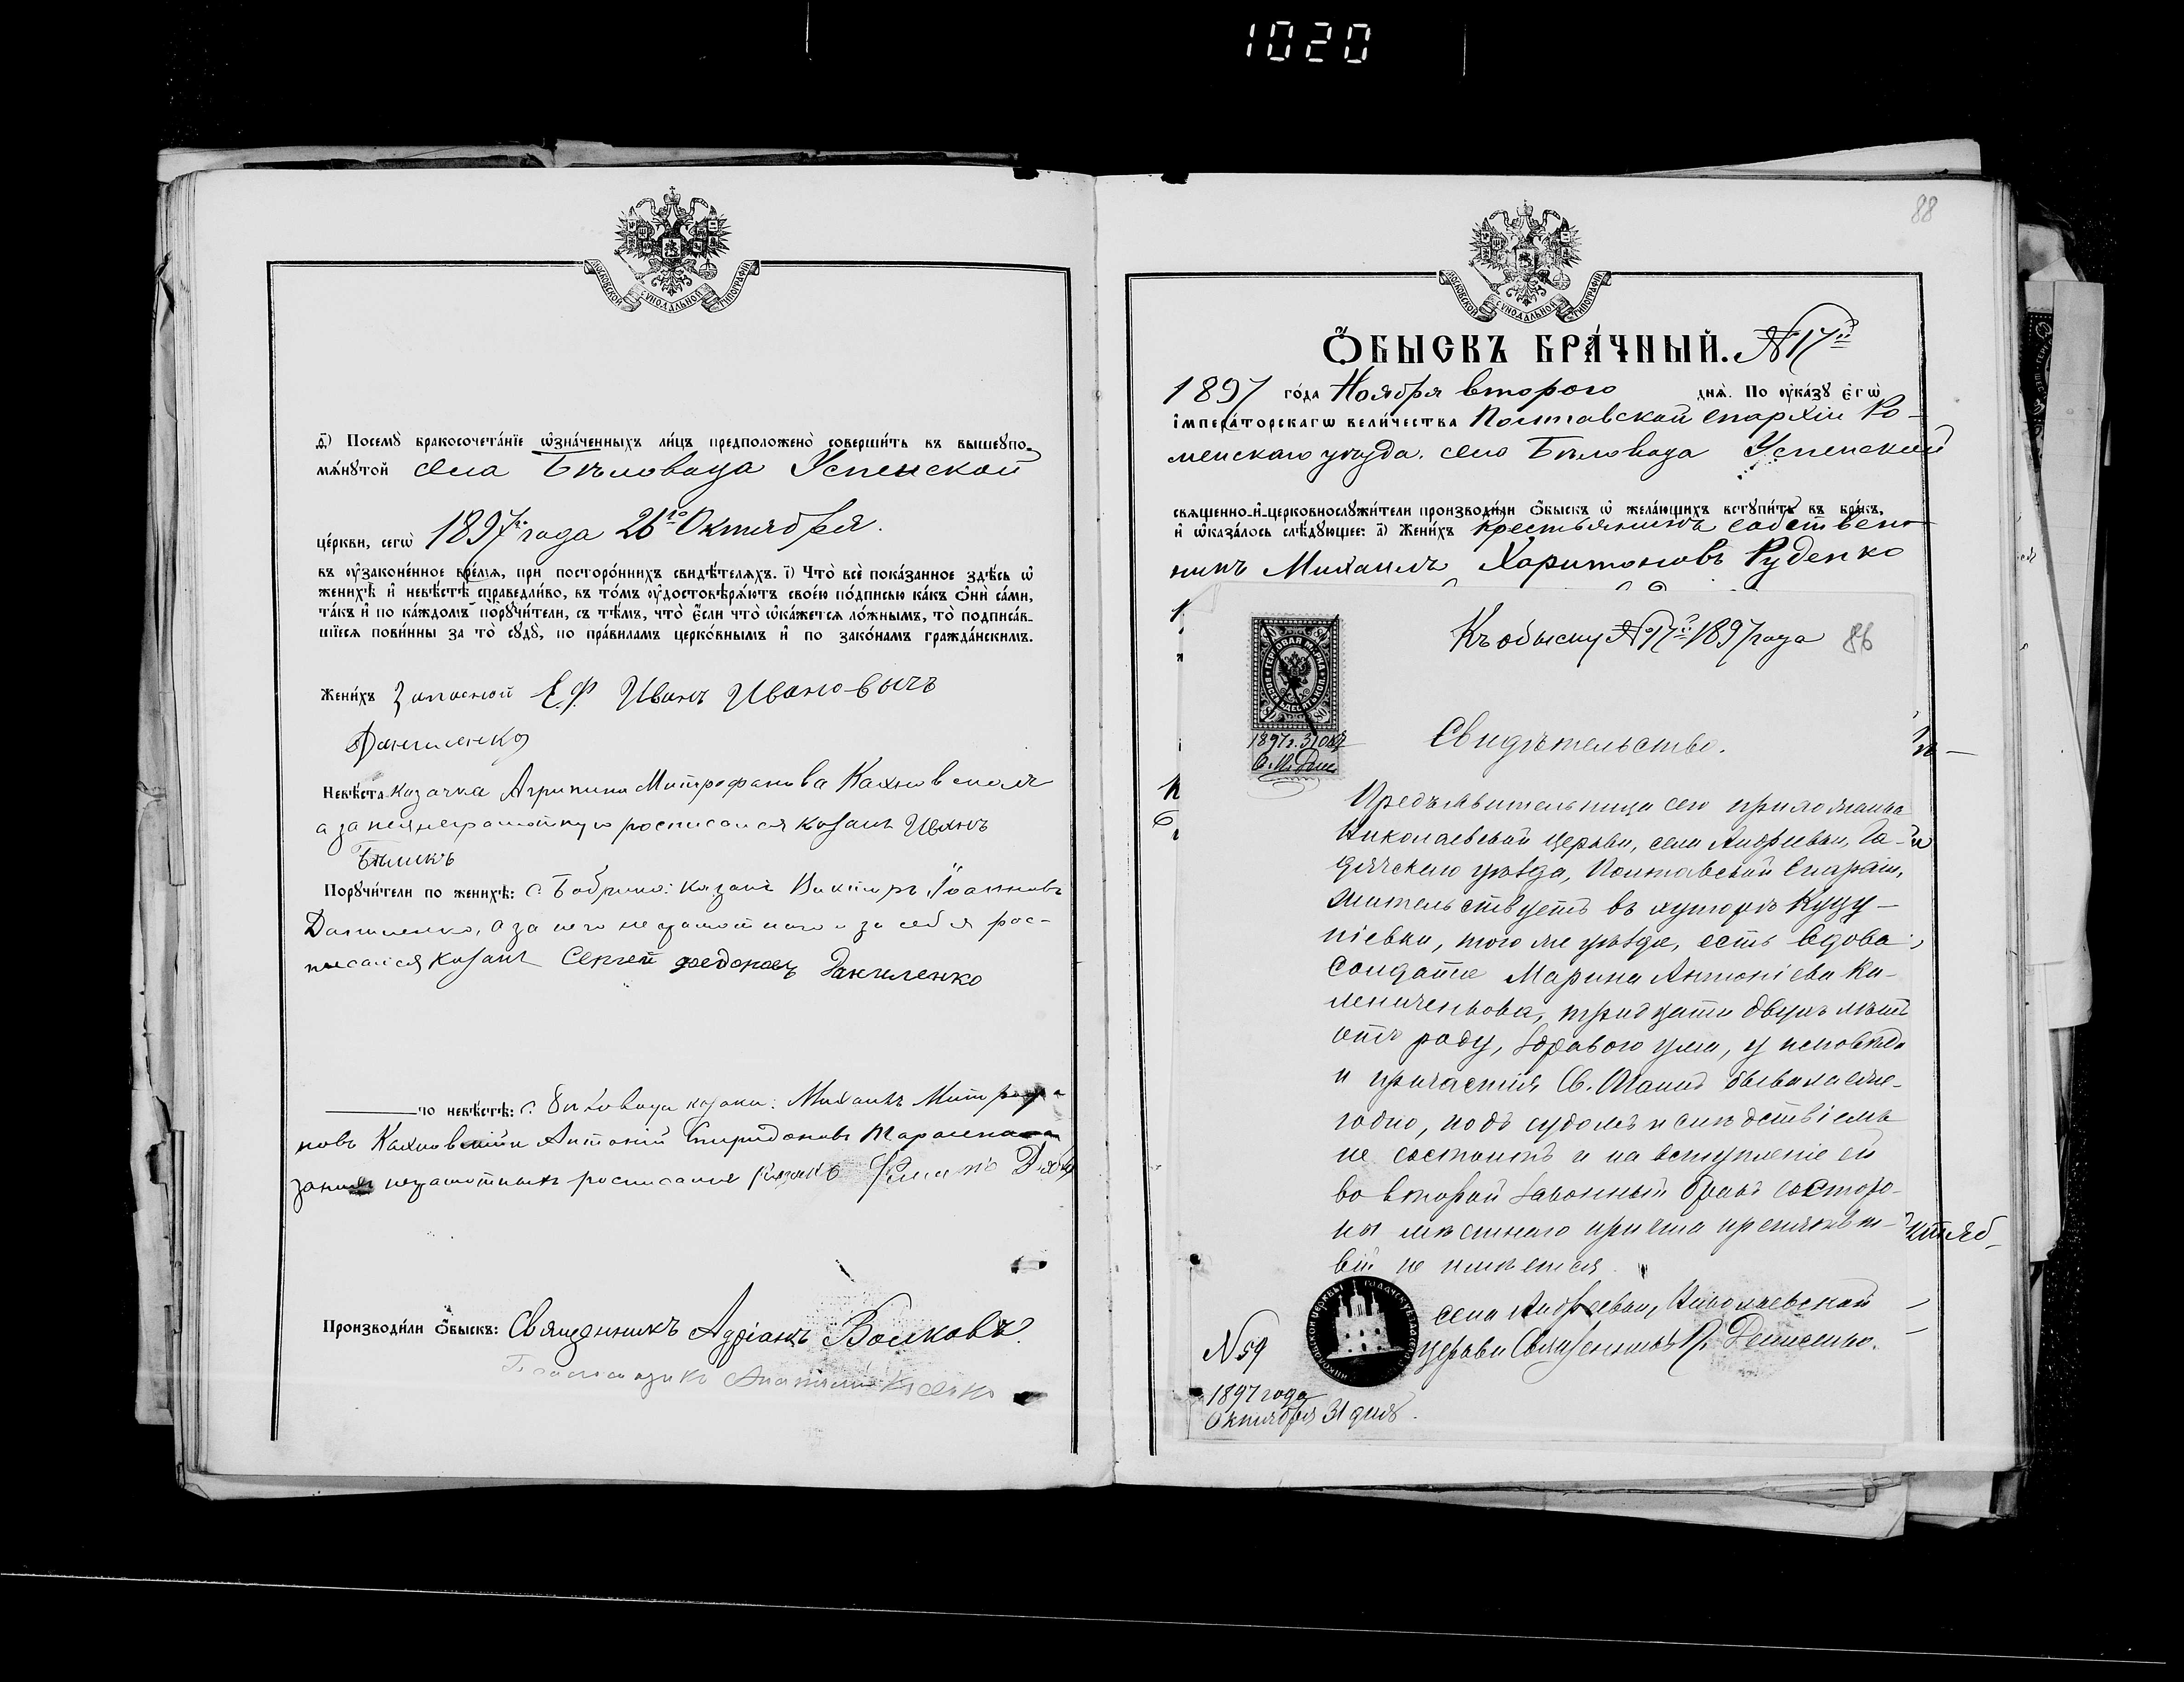 1020
МОСКОВСКОЙ СѴНОДАЛЬНОЙ ТИПОГРАФІИ
д҃) Посему̀ бракосочета́нїе ѡ҆зна́ченныхъ ли́цъ предположено̀ соверши́ть въ вышеупо-
мѧ́нутой села Бѣловода Успенской
це́ркви, сегѡ̀ 1897го года 26го Октября.
въ ᲂу҆законе́нное вре́мѧ, при посторо́ннихъ свидѣ́телѧхъ. і҃) Что̀ всѐ пока́занное здѣ́сь ѡ҆
женихѣ̀ и҆ невѣ́стѣ справедли́во, въ то́мъ ᲂу҆достовѣрѧ́ютъ свое́ю по́дписью ка́къ ѻ҆нѝ са́ми,
та́къ и҆ по ка́ждомъ порꙋчи́тели, съ тѣ́мъ, что̀ є҆́сли что̀ ѡ҆ка́жется ло́жнымъ, то̀ подписа́в-
шїесѧ пови́нны за то̀ сꙋдꙋ̀, по пра́виламъ церко́внымъ и҆ по зако́намъ гражда́нскимъ.
Жени́хъ Запасной Еф Иванъ Ивановичъ
Даниленко
Невѣ́ста казачка Агрипина Митрофанова Кахновская
а за нея неграмотную росписался козакъ Иванъ
Бѣликъ
Порꙋчи́тели по женихѣ̀: с. Бобрика: казакъ Викторъ Іоанновъ
Даниленко, а за него неграмотного и за себя рос-
писался козакъ Сергей Федоровъ Даниленко
по невѣ́стѣ: с. Бѣловода козаки: Михаилъ Митрофа-
новъ Кахновскій и Антоній Спиридоновъ
за неграмотныхъ росписался козакъ
Производи́ли ѻ҆́быскъ: Священникъ Адріанъ Волковъ.
Псаломщикъ
88
МОСКОВСКОЙ СѴНОДАЛЬНОЙ ТИПОГРАФІИ
Ѻ҆́БЫСКЪ БРА́ЧНЫЙ. №17й
1897 го́да Ноября второго днѧ̀. По ᲂу҆ка́зꙋ є҆гѡ̀
і҆мпера́торскагѡ вели́чества Полтавской епархіи Ро-
менскаго уѣзда. село Бѣловода Успенской
свѧщенно-и҆-церковнослꙋжи́тели производи́ли ѻ҆́быскъ ѡ҆ жела́ющихъ встꙋпи́ть въ бра́къ,
и҆ ѡ҆каза́лось слѣ́дꙋющее: а҃) Жени́хъ крестьянинъ собствен-
никъ Михаилъ Харитоновъ Руденко
Къ обыску №17й 1897 года 86
ГЕРБОВАЯ МАРКА ВОСЕМЬДЕСЯТЪ КОП. 80
1897 г. 31 Окт
Свидѣтельство.
Предъявительница сего прихожанка
Николаевской церкви, села Андреевки, Га-
дячскаго уѣзда, Полтавской Епархіи,
жительствуетъ въ хуторѣ Куду-
піевки, того же уѣзда, есть вдова
солдата Марина Антоніева Ка-
лениченкова, тридцати двухъ лѣтъ
отъ роду, здраваго ума, у исповѣди
и причастія Св. Таинъ бывала еже-
годно, подъ судомъ и слѣдствіемъ
не состоитъ и на вступленіе ей
во второй законный бракъ со сторо-
ны мѣстнаго причта препятст-
вій не имѣется.
села Андреевки, Николаевской
церкви Священникъ П. Денисенко.
№59
1897 года
Октября 31 дня.
ктяб-